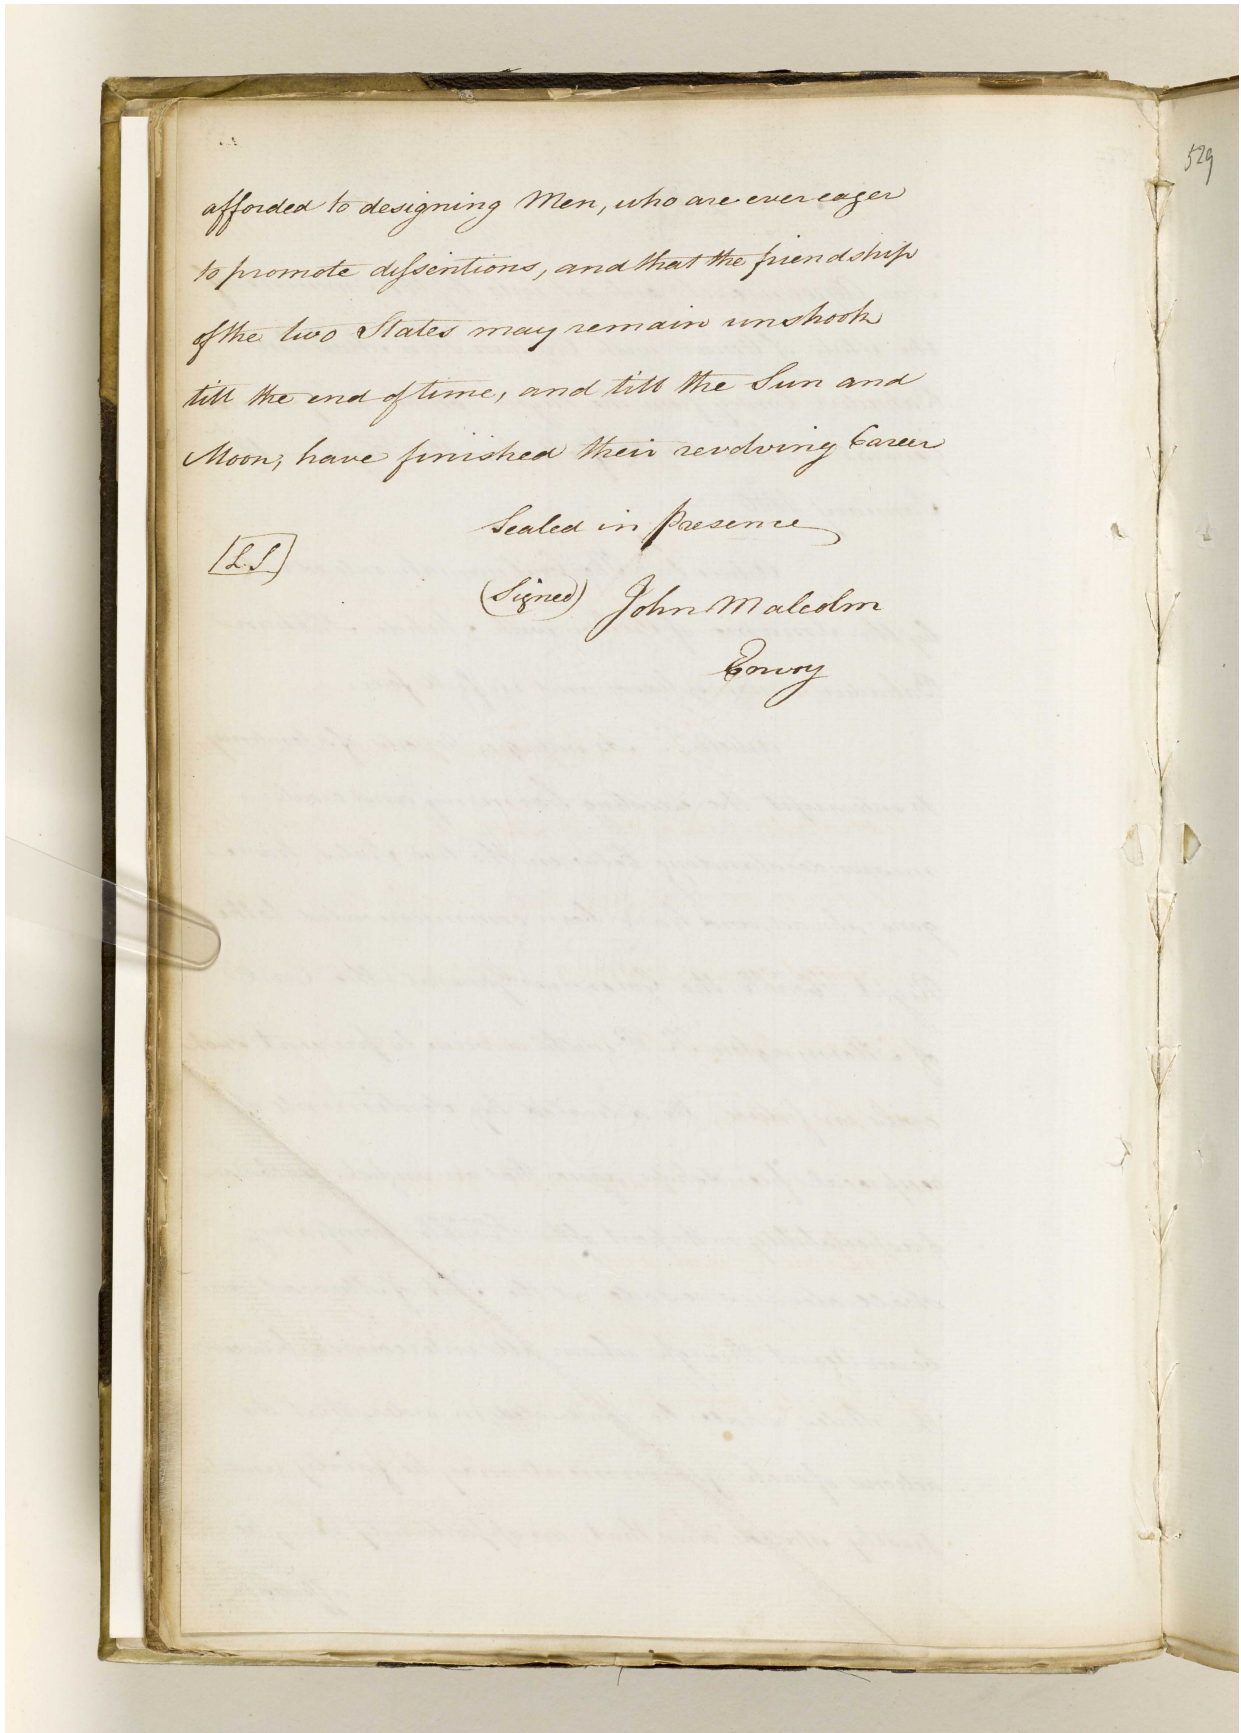 afforded to designing Men, who are ever eager
to promote dissentions, and that the friendship
of the two States may remain unshook
till the end of time, and till the Sun and
Moon, have finished their revolving Career
Sealed in Presence
L.S
(Signed) John Malcolm
Envoy
529